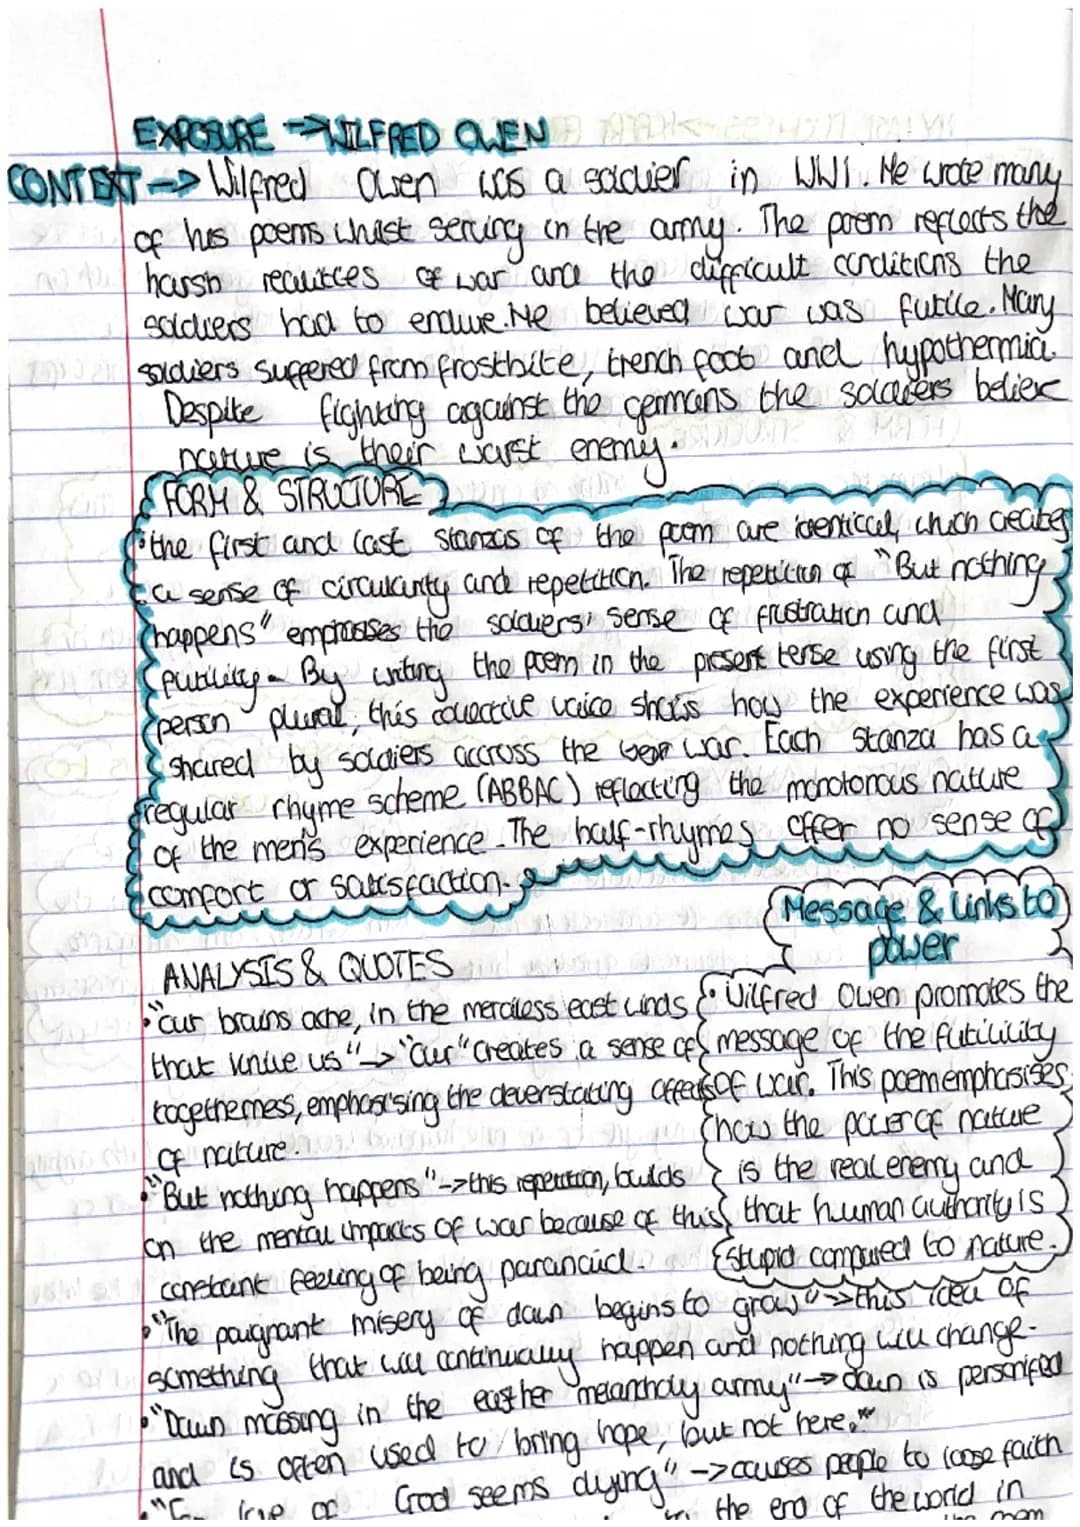 EXPOSURE → WILFRED OWEN
CONTEXT → Wilfred Owen was a soldier in WW1. He wrote many
of his poems whilst serving in the army. The poem reflects the
harsh realities of war and the difficult conditions the
soldiers had to endure. He believed war was futile. Many
soldiers suffered from frostbite, trench foot and hypothermia.
Despite fighting against the germans the soldiers believe
nature is their worst enemy.
FORM & STRUCTURE
• the first and last stanzas of the poem are identical, which creates
a sense of circularity and repetition. The repetition of "But nothing
happens" emphasises the soldiers' sense of frustration and
futility. By writing the poem in the present tense using the first
person plural, this collective voice shows how the experience was
shared by soldiers accross the war. Each stanza has a
regular rhyme scheme (ABBAC) reflecting the monotonous nature
of the men's experience. The half-rhymes offer no sense of
comfort or satisfaction.
ANALYSIS & QUOTES
• "our brains ache, in the merciless east winds
that knive us" → "our" creates a sense of
togetherness, emphasising the deverstating affects
of nature.
• "But nothing happens" → this repetition, builds
on the mental impacts of war because of this
constant feeling of being paranoid.
Message & Links to
power
• Wilfred Owen promotes the
message of the futility
of war. This poem emphasises
how the power of nature
is the real enemy and
that human authority is
stupid compared to nature.
• "The poignant misery of dawn begins to grow" → this idea of
something that will continually happen and nothing will change.
• "Dawn massing in the east her melancholy army" → dawn is personified
and is often used to bring hope, but not here."
love of God seems dying" → causes people to loose faith
the end of the world in